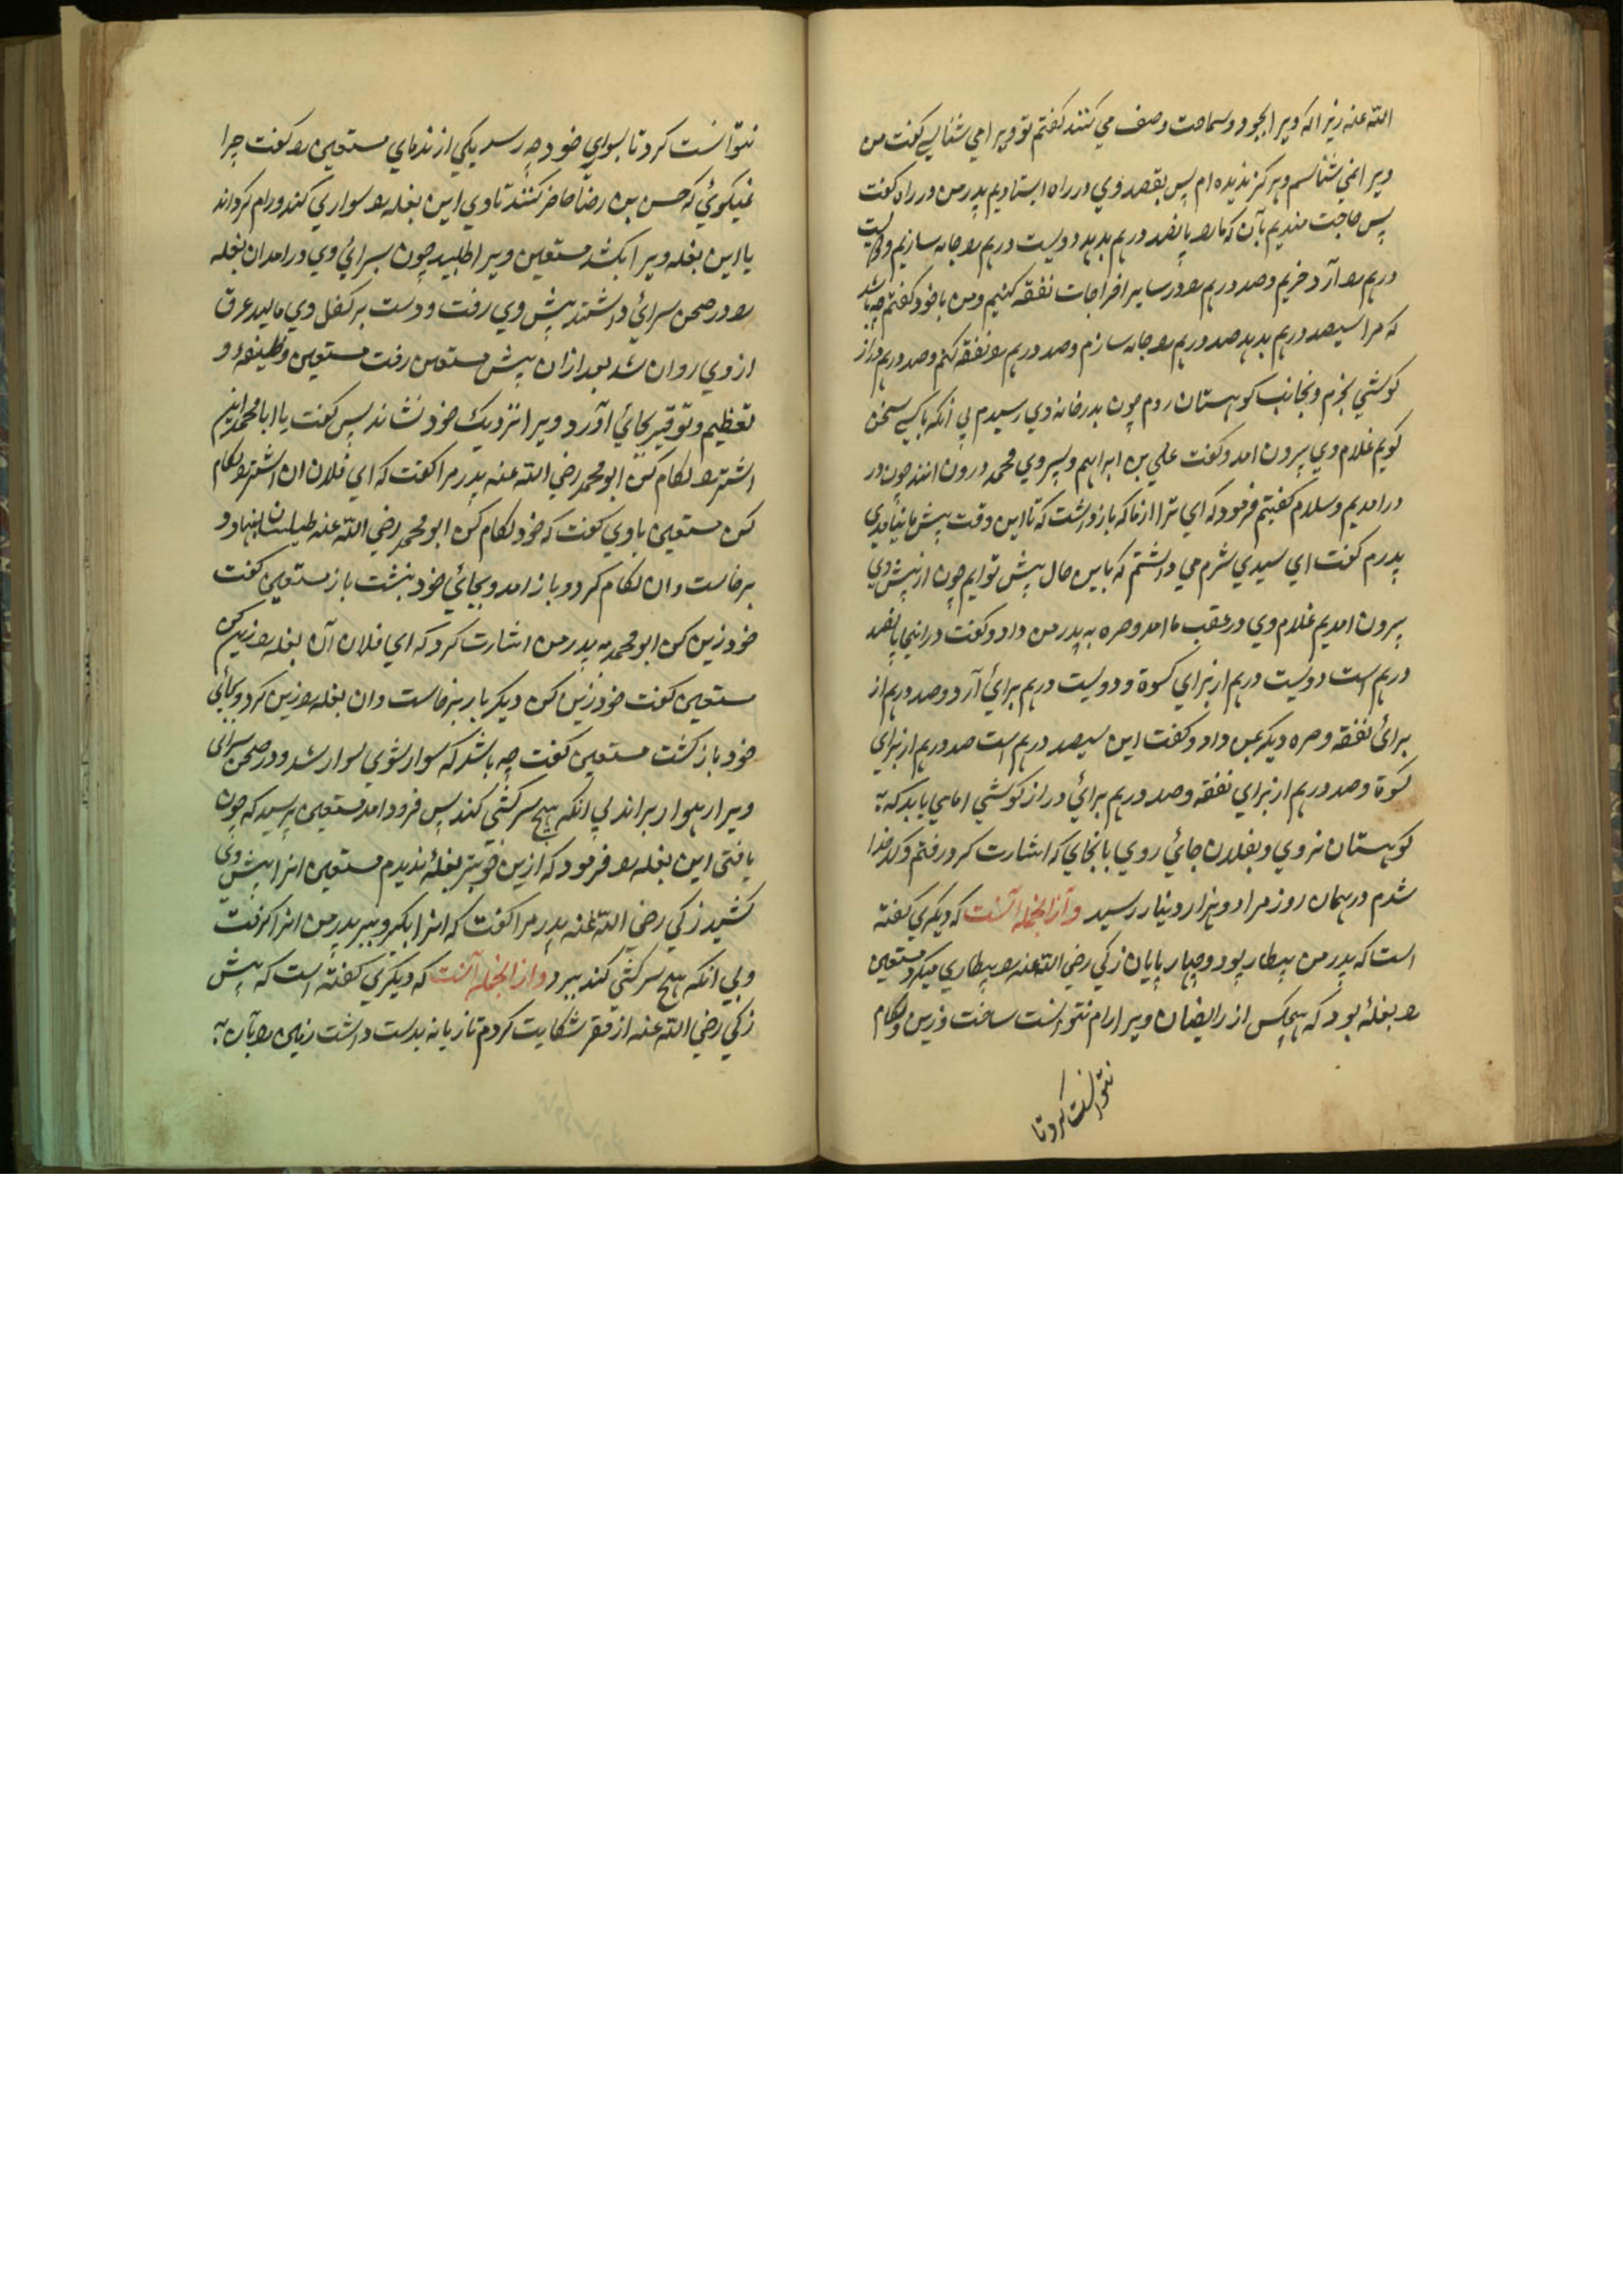 الله عنه زیرا که ویرا بجود و سماحت وصف می کنند گفتم تو ویرا می شناسی گفت من
ویرا نمی شناسم و هرگز ندیده ام پس بقصد وی در راه ایستادیم پدر من در راه گفت
پس حاجت مندیم بآن که مارا پانصد درهم بدهد دویست درهم را جامه سازیم و دویست
درهم را آرد خریم و صد درهم را در سایر اخراجات نفقه کنیم و من با خود گفتم چه باشد
که مرا سیصد درهم بدهد صد درهم را جامه سازم و صد درهم را نفقه کنم و صد درهم دراز
کوشی بخرم و بجانب کوهستان روم چون بدر خانه وی رسیدم بی انکه با کسی سخن
کویم غلام وی بیرون امد و گفت علی بن ابراهیم و پسر وی محمد درون ایند چون در
درامدیم و سلام گفتیم فرمود که ای ترا از ما که باز داشت که تا این وقت پیش ما نیامدی
پدرم گفت ای سیدی شرم می داشتم که باین حال پیش تو ایم چون از پیش وی
بیرون امدیم غلام وی در عقب ما امد و صره به پدر من داد و گفت در اینجا پانصد
درهم است دویست درهم از برای کسوة و دویست درهم برای آرد و صد درهم از
برای نفقه و صره دیکر بمن داد و گفت این سیصد درهم است صد درهم از برای
کسوة و صد درهم از برای نفقه و صد درهم برای دراز کوشی اما می باید که به
کوهستان نروی و بفلان جائی روی بانجای که اشارت کرد رفتم و کدخدا
شدم در همان روز مرا دو هزار دینار رسید و از انجمله آنست که دیکری گفته
است که پدر من بیطار بود و چهار پایان زکی رضی الله عنه را بیطاری میکرد مستعین
را بغلۀ بود که هیچکس از رایضان ویرا رام نتوانست ساخت و زین و لکام
نتوانست کرد تا
نتوانست کرد تا بسواری خود چه رسد یکی از ندمای مستعین را گفت چرا
نمیکوئی که حسن بن رضا حاضر کنند تا وی این بغله را سواری کند و رام کرداند
یا این بغله ویرا بکشد مستعین ویرا طلبید چون بسرائی وی درامد ان بغله
را در صحن سرائی داشتند پیش وی رفت و دست بر کفل وی مالید عرق
از وی روان شد بعد ازان پیش مستعین رفت مستعین وظیفه و
تعظیم و توقیر بجائی آورد و ویرا نزدیک خود نشاند پس گفت یا ابا محمد این
اشتر را لکام کن ابو محمد رضی الله عنه پدر مرا گفت که ای فلان ان اشتر را لکام
کن مستعین با وی گفت که خود لکام کن ابو محمد رضی الله عنه طیلسان بنهاد و
برخاست و ان لکام کرد و باز امد و بجائی خود بنشست باز مستعین گفت
خود زین کن ابو محمد به پدر من اشارت کرد که ای فلان آن بغله را زین کن
مستعین گفت خود زین کن دیکر بار برخاست و ان بغله را زین کرد و بجائی
خود باز گشت مستعین گفت چه باشد که سوار شوی سوار شد و در صحن سرای
ویرا رهوار براند بی انکه هیچ سرکشی کند پس فرود امد مستعین پرسید که چون
یافتی این بغله را فرمود که ازین خوبتر بغلۀ ندیدم مستعین انرا پیش وی
کشید زکی رضی الله عنه پدر مرا گفت که انرا بکیر و ببر پدر من انرا کرفت
و بی انکه هیچ سرکشی کند ببرد و از انجمله آنست که دیکری گفته است که پیش
زکی رضی الله عنه از فقر شکایت کردم تازیانه بدست داشت زمین را بآن به